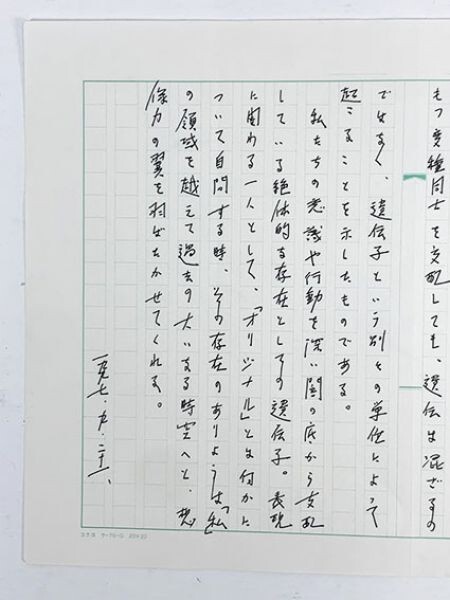 もつ変種同士を交配しても、遺伝は混ざるの
ではなく、遺伝子という別々の単位によって
起こることを示したものである。
私たちの意識や行動を深い闇の底から支配
している絶体的な存在としての遺伝子。表現
に関わる一人として、「オリジナル」とは何かに
ついて自問する時、その存在のありようは「私」
の領域を越えて過去の大いなる時空へと、想
像力の翼を羽ばたかせてくれる。
一九九七・九・二十一、
コクヨ ケ-70 20×20